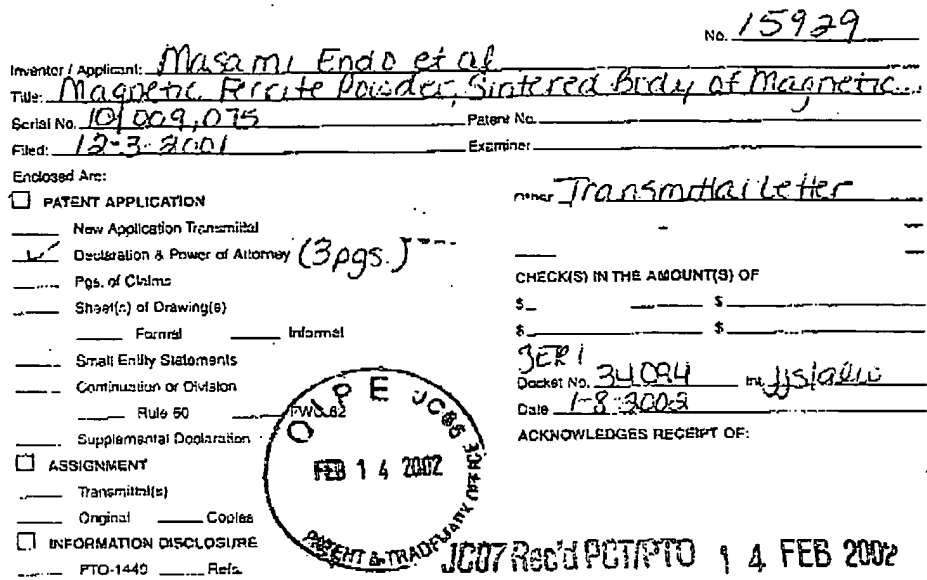 No. 15929
Inventor / Applicant: Masami Endo et al
Title: Magnetic Ferrite Powder, Sintered Body of Magnetic...
Serial No. 10/009,075 Patent No.
Filed: 12-3-2001 Examiner
Enclosed Are:
PATENT APPLICATION
New Application Transmittal
Declaration & Power of Attorney (3pgs.)
Pgs. of Claims
Sheet(s) of Drawing(s)
Formal Informal
Small Entity Statements
Continuation or Division
Rule 60 FWC 62
Supplemental Declaration
ASSIGNMENT
Transmittal(s)
Original Copies
INFORMATION DISCLOSURE
PTO-1449 Refs.
Other Transmittal Letter
CHECK(S) IN THE AMOUNT(S) OF
$ $
$ $
Docket No. 34094 Int.
Date 1-8-2002
ACKNOWLEDGES RECEIPT OF:
OIPE JC85
FEB 14 2002
PATENT & TRADEMARK
JC07 Rec'd PCT/PTO 14 FEB 2002